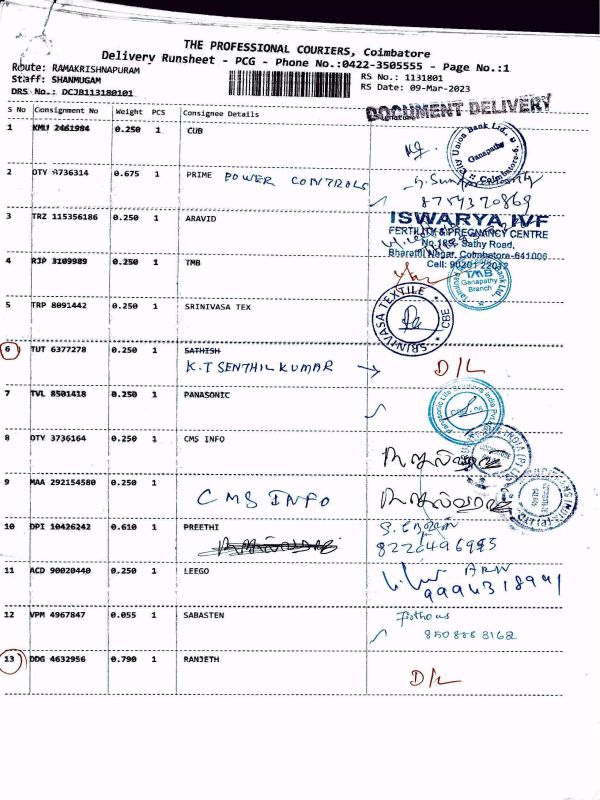 THE PROFESSIONAL COURIERS, Coimbatore
Delivery Runsheet - PCG - Phone No.:0422-3505555 - Page No.:1
Route: RAMAKRISHNAPURAM
Staff: SHANMUGAM
DRS No.: DCJB113180101
RS No.: 1131801
RS Date: 09-Mar-2023
S No Consignment No Weight PCS Consignee Details
DOCUMENT DELIVERY
1 2461984 0.250 1 CUB
City Union Bank Ltd., Ganapathy
2 DTY 0.675 1 PRIME POWER CONTROLS
8754320869
3 TRZ 115356186 0.250 1 ARAVID
ISWARYA IVF
FERTILITY & PREGNANCY CENTRE
Sathy Road,
Bharathi Nagar, Coimbatore-641006
Cell:
4 RJP 3109989 0.250 1 TMB
TMB
Ganapathy
Branch
5 TRP 8091442 0.250 1 SRINIVASA TEX
SRINIVASA TEXTILE CBE
6 TUT 6377278 0.250 1 SATHISH
K.T SENTHIL KUMAR → D/L
7 TVL 8501418 0.250 1 PANASONIC
8 DTY 3736164 0.250 1 CMS INFO
9 MAA 292154580 0.250 1
CMS INFO
10 DPI 10426242 0.610 1 PREETHI
8220496995
11 ACD 90020440 0.250 1 LEEGO
9994318991
12 VPM 4967847 0.055 1 SABASTEN
8508883162
13 DDG 4632956 0.790 1 RANJETH
D/L